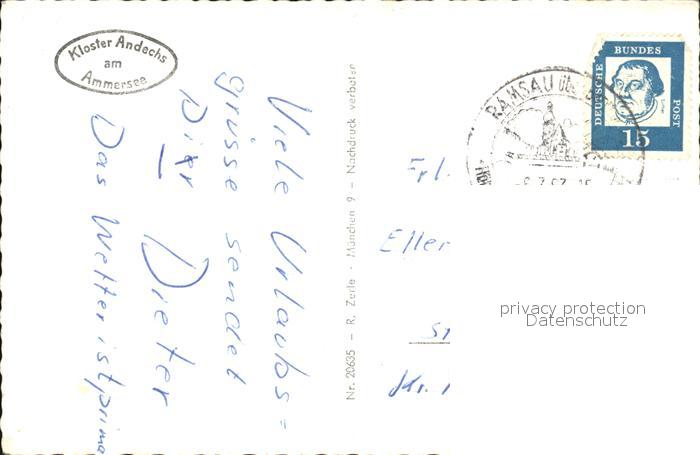 Kloster Andechs
am
Ammersee
Viele Urlaubs=
grüsse sendet
Dir
Dieter
Das Wetter ist prima
Nr. 20635 - R. Zerle - München 9 - Nachdruck verboten
DEUTSCHE
BUNDES
POST
15
RAMSAU
Frl.
Kr.
privacy protection
Datenschutz